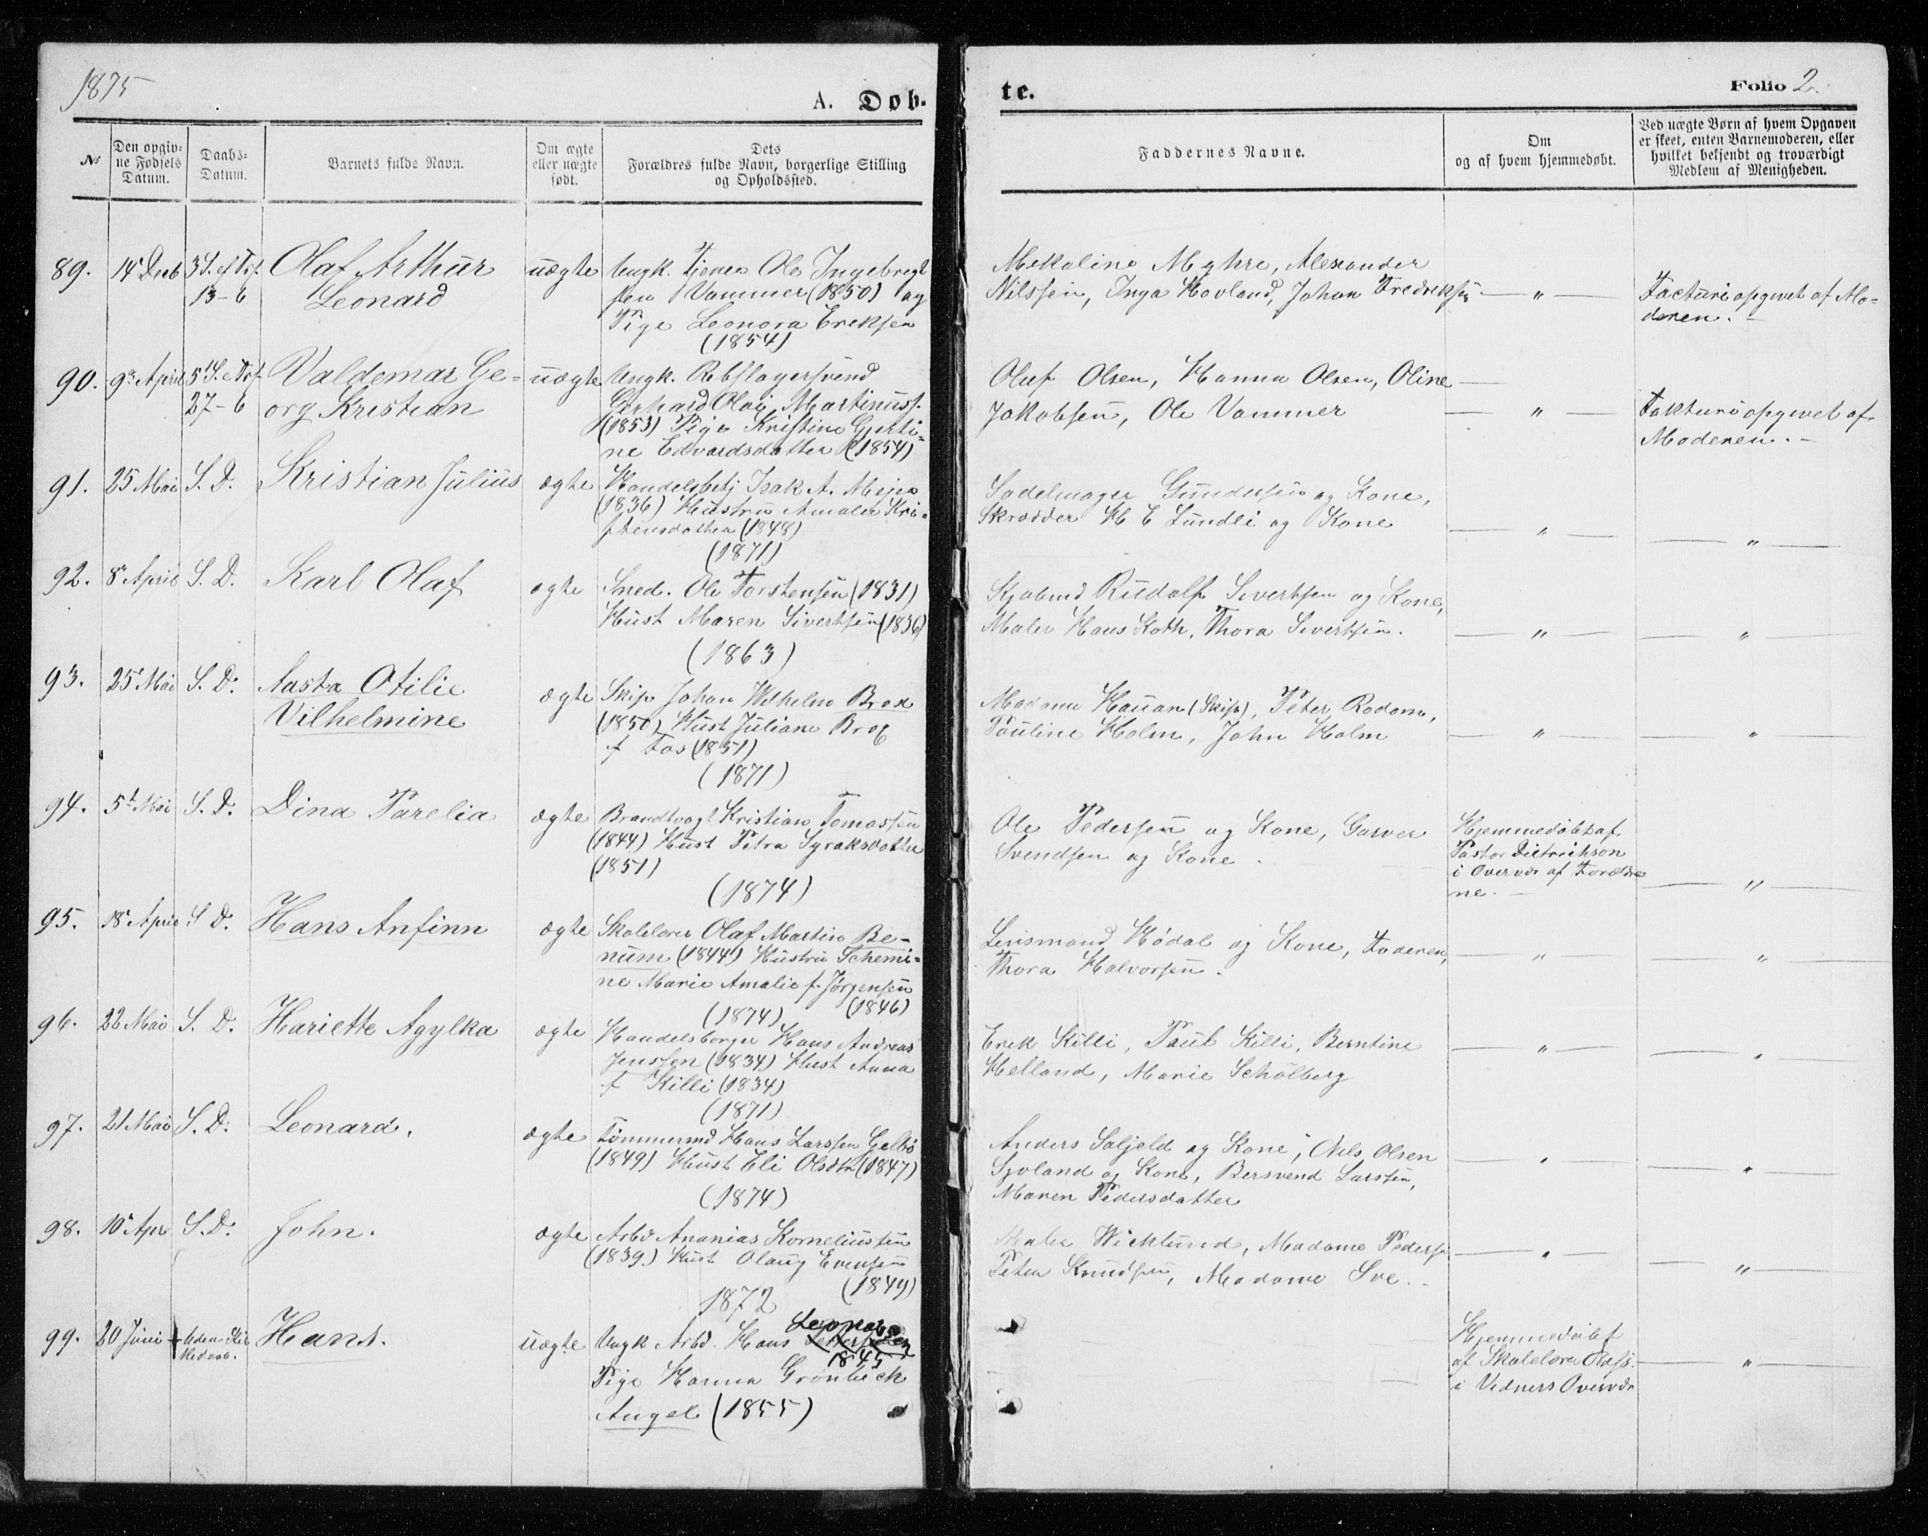 1875
A. Døb-
te.
Folio 2.
No
Den opgiv-
ne Fødsels
Datum.
Daabs-
Datum.
Barnets fulde Navn.
Om ægte
eller uægte
født.
Dets
Forældres fulde Navn, borgerlige Stilling
og Opholdssted.
Faddernes Navne.
Om
og af hvem hjemmedøbt.
Ved uægte Børn af hvem Opgaven
er skeet, enten Barnemoderen, eller
hvilket bekjendt og troværdigt
Medlem af Menigheden.
89. 14 Decb 3 S. ef Trf.
13-6
Olaf Arthur
Leonard
uægte
Ungk. Tjener Ole Ingebrigt
sen Vammer (1850) og
Pige Leonora Eriksen
(1854)
Mekaline Myhre, Alexander
Nilssen, Inga Hovland, Johan Fredriksen
— " —
opgivet af Mo-
deren. -
90. 9 April 5 S. e Trf.
27-6
Valdemar Ge-
org Kristian
uægte
Ungk. Rebslagersvend
Gerhard Olai Martinuss.
(1853) Pige Kristine Gjerti-
ne Edvardsdatter (1854)
Oluf Olsen, Hanna Olsen, Oline
Jakobsen, Ole Vammer
— " —
opgivet af
Moderen. -
91. 25 Mai S. D. Kristian Julius ægte
Handelsbetj Isak A. Mejer
(1836) Hustru Amalie Kri-
stensdatter (1848)
(1871)
Sadelmager Gundersen og Kone,
Skrædder H E Lundli og Kone
— " — — " —
92. 8 April S. D. Karl Olaf ægte
Smed. Ole Torstensen (1831)
Hust Maren Sivertsen (1836)
(1863)
Rudolf Sivertsen og Kone,
Maler Hans Koth, Thora Sivertsen.
— " — — " —
93. 25 Mai S. D. Aasta Otilie
Vilhelmine
ægte
Skip Johan Wilhelm Brox
(1850) Hust Juliane Brox
f Fos (1851)
(1871)
Madame Hauan (Skip), Peter Rodom,
Pauline Holm, John Holm
— " — — " —
94. 5 Mai S. D. Dina Parelia ægte
Brandvagt Kristian Tomassen
(1844) Hust Petra Syraksdatter
(1851)
(1874)
Ole Pedersen og Kone, Garver
Svendsen og Kone.
Hjemmedøbt af
Pastor Dietrichson
i Overvær af Forældre
ne. -
— " —
95. 18 April S D. Hans Anfinn ægte
Skolelærer Olaf Martin Be-
num (1844) Hustru Schemi-
ne Marie Amalie f. Jørgensen
(1846)
(1874)
Lensmand Hødal og Kone, Faderen,
Thora Halvorsen.
— " — — " —
96. 22 Mai S. D. Hariette Agylka ægte
Handelsborger Hans Andreas
Jenssen (1834) Hust Anna
f Killi (1834)
(1871)
Erik Killi, Paul Killi, Berntine
Helland, Marie Schølberg
— " — — " —
97. 21 Mai S. D. Leonard. ægte
Tømmermd Hans Larssen Gelbø
(1849) Hust Eli Olsdtr (1847)
(1874)
Anders Saljeld og Kone, Nils Olsen
og Kone, Bersvend Larssen,
Maren Pedersdatter
— " — — " —
98. 10 Apr S. D. John. ægte
Arbd Ananias Korneliussen
(1839) Hust Olaug Evensen
(1849)
1872
Maler Wicklund, Madame Pedersen
Peter Knudsen, Madame Sve.
— " — — " —
99. 20 Juni Uden Kir
kedaab.
Hans. uægte
Ungk Arbd. Hans
1845
Pige Hanna Grønbeck
Angel (1855)
Hjemmedøbt
af Skolelærer
i Vidners Overvær
— " —